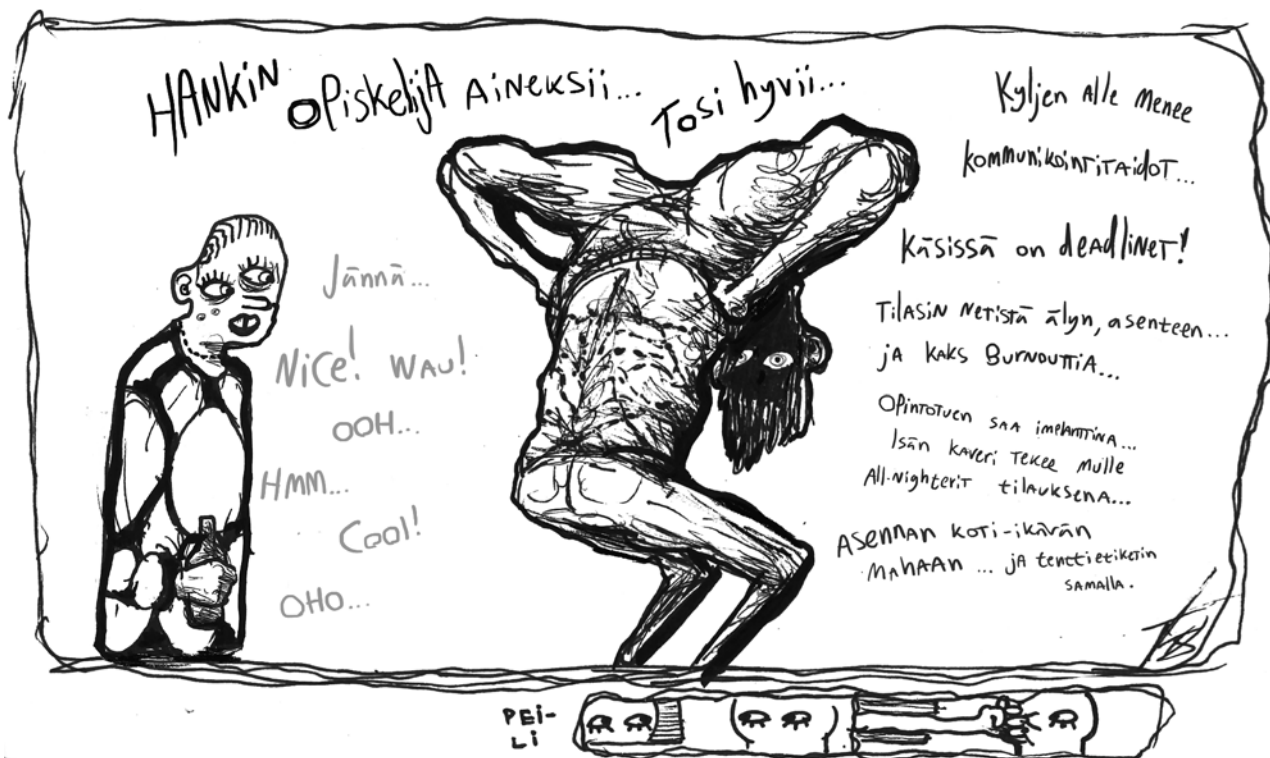 HANKIN OPiskelijA AiNEKSii... Tosi hyvii...
Jännä...
NiCE! WAU!
OOH...
HMM...
Cool!
OHO...
Kyljen Alle Menee
kommunikointitaidot...
Käsissä on deadlinet!
Tilasin netistä älyn, asenteen...
jA kaks Burnouttia...
Opintotuen saa implanttina...
Isän kaveri tekee mulle
All-nighterit tilauksena...
Asennan koti-ikävän
mahaan ... ja tenttietiketin
samalla.
PEi-
Li